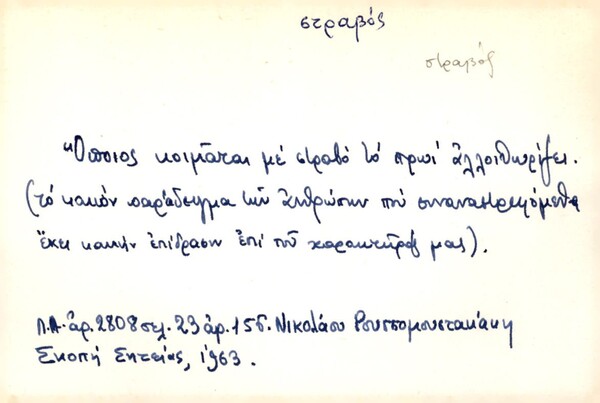 στραβός
στραβός
Ὅποιος κοιμᾶται μέ στραβό τό πρωί ἀλλοιθωρίζει.
(τό κακόν παράδειγμα τῶν ἀνθρώπων πού συναναστρεφόμεθα
ἔχει κακήν ἐπίδρασιν ἐπί τοῦ χαρακτῆρος μας).
Λ.Α. ἀρ. 2808 σελ. 23 ἀρ. 155. Νικολάου Ρουσσομουστακάκη
Σκοπή Σητείας, 1963.